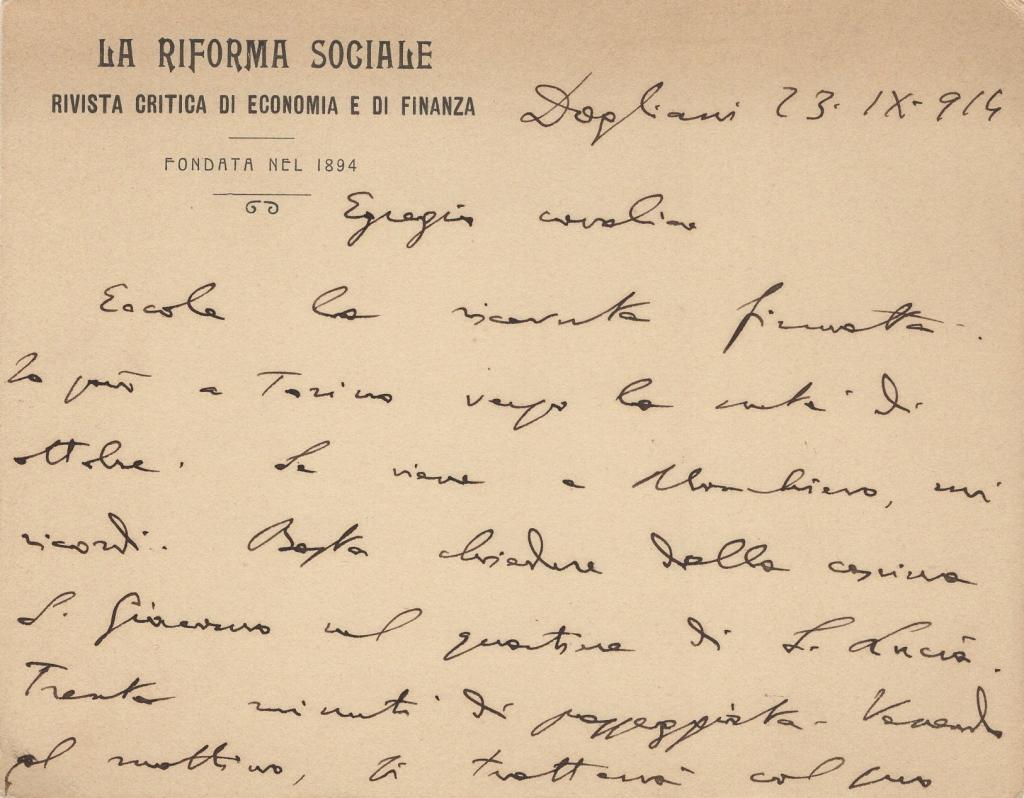 LA RIFORMA SOCIALE
RIVISTA CRITICA DI ECONOMIA E DI FINANZA
FONDATA NEL 1894
Dogliani 23. IX. 914
Egregio cavaliere
Eccole la ricevuta firmata.
a Torino verso la metà di
ottobre. Se viene a Monchiero, mi
ricordi. Basta chiedere della cascina
S. Giacomo nel quartiere di S. Lucia.
Trenta minuti di passeggiata. Venendo
al mattino, si tratterrà col suo